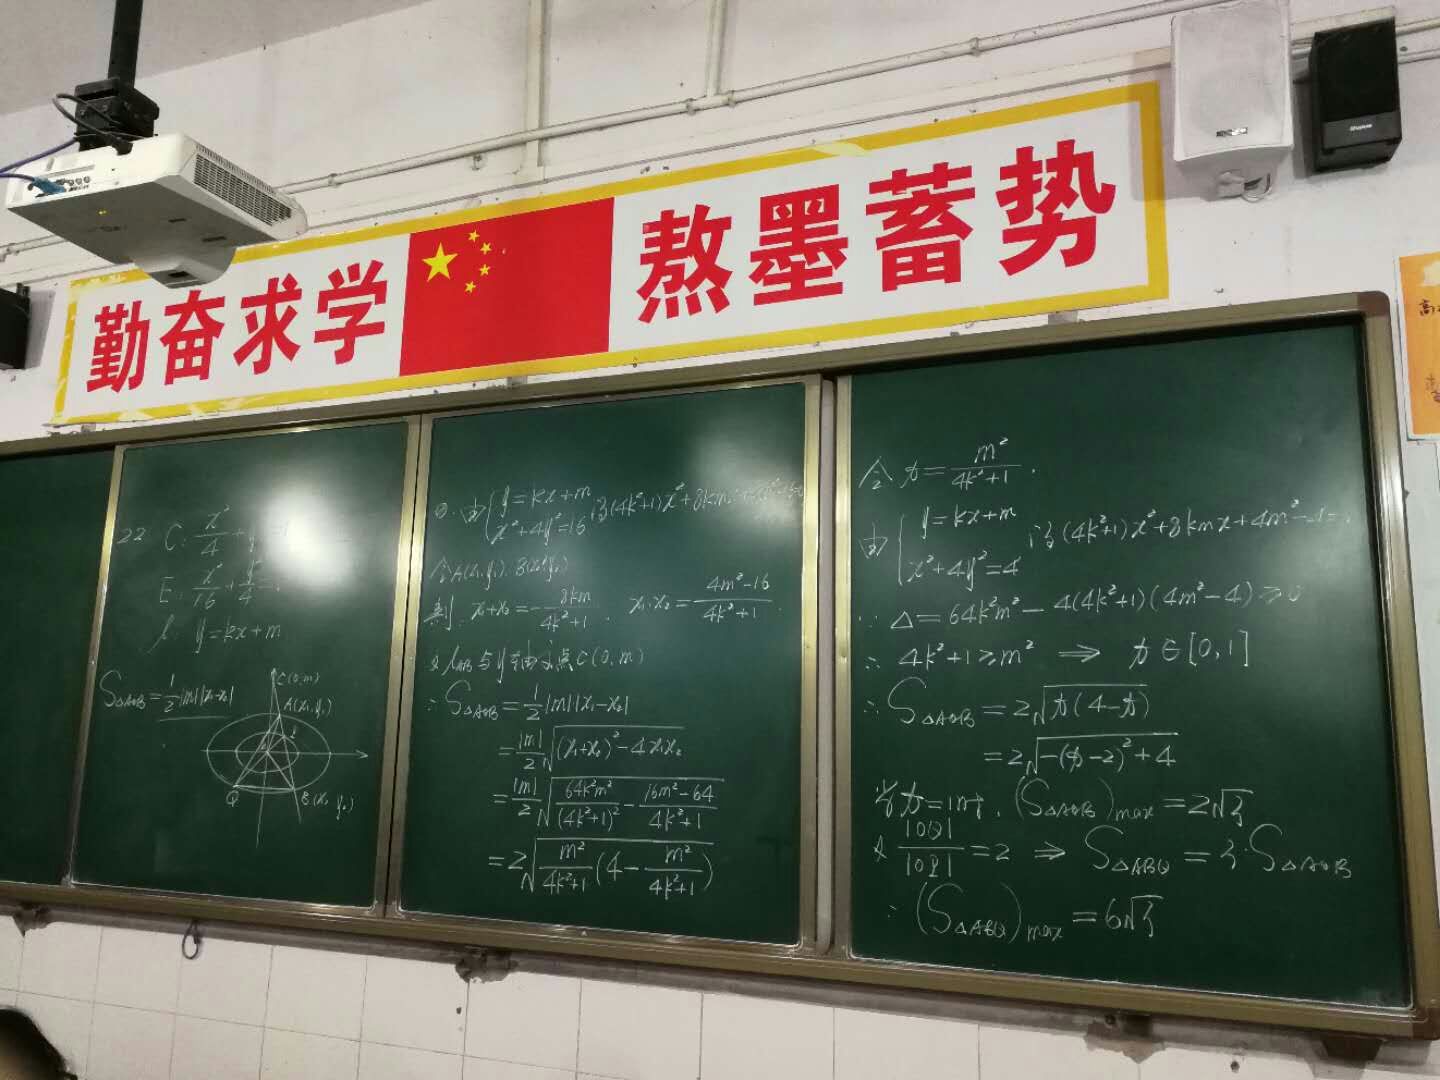 勤奋求学 熬墨蓄势
22 C: x²/4 + y² = 1
E: x²/16 + y²/4 = 1
l: y=kx+m
S△AOB = 1/2|m||x₁-x₂|
C(0,m)
A(x₁,y₁)
Q
B(x₂,y₂)
②. 由{y=kx+m
x²+4y²=16 得(4k²+1)x²+8kmx+4m²-16=0
令A(x₁,y₁). B(x₂,y₂)
则. x₁+x₂=-8km/(4k²+1). x₁·x₂=(4m²-16)/(4k²+1).
又l_AB与y轴交点C(0,m)
∴ S△AOB=1/2|m||x₁-x₂|
=|m|/2 √((x₁+x₂)²-4x₁x₂)
=|m|/2 √(64k²m²/(4k²+1)² - (16m²-64)/(4k²+1))
=2√(m²/(4k²+1) (4-m²/(4k²+1)))
令 t=m²/(4k²+1).
由{y=kx+m
x²+4y²=4 得(4k²+1)x²+8kmx+4m²-4=0
∴ △=64k²m²-4(4k²+1)(4m²-4)≥0
∴ 4k²+1≥m² ⇒ t∈[0,1]
∴ S△AOB=2√(t(4-t))
=2√(-(t-2)²+4)
当t=1时, (S△AOB)max=2√3
又 |OQ|/|OP|=2 ⇒ S△ABQ=3·S△AOB
∴ (S△ABQ)max=6√3